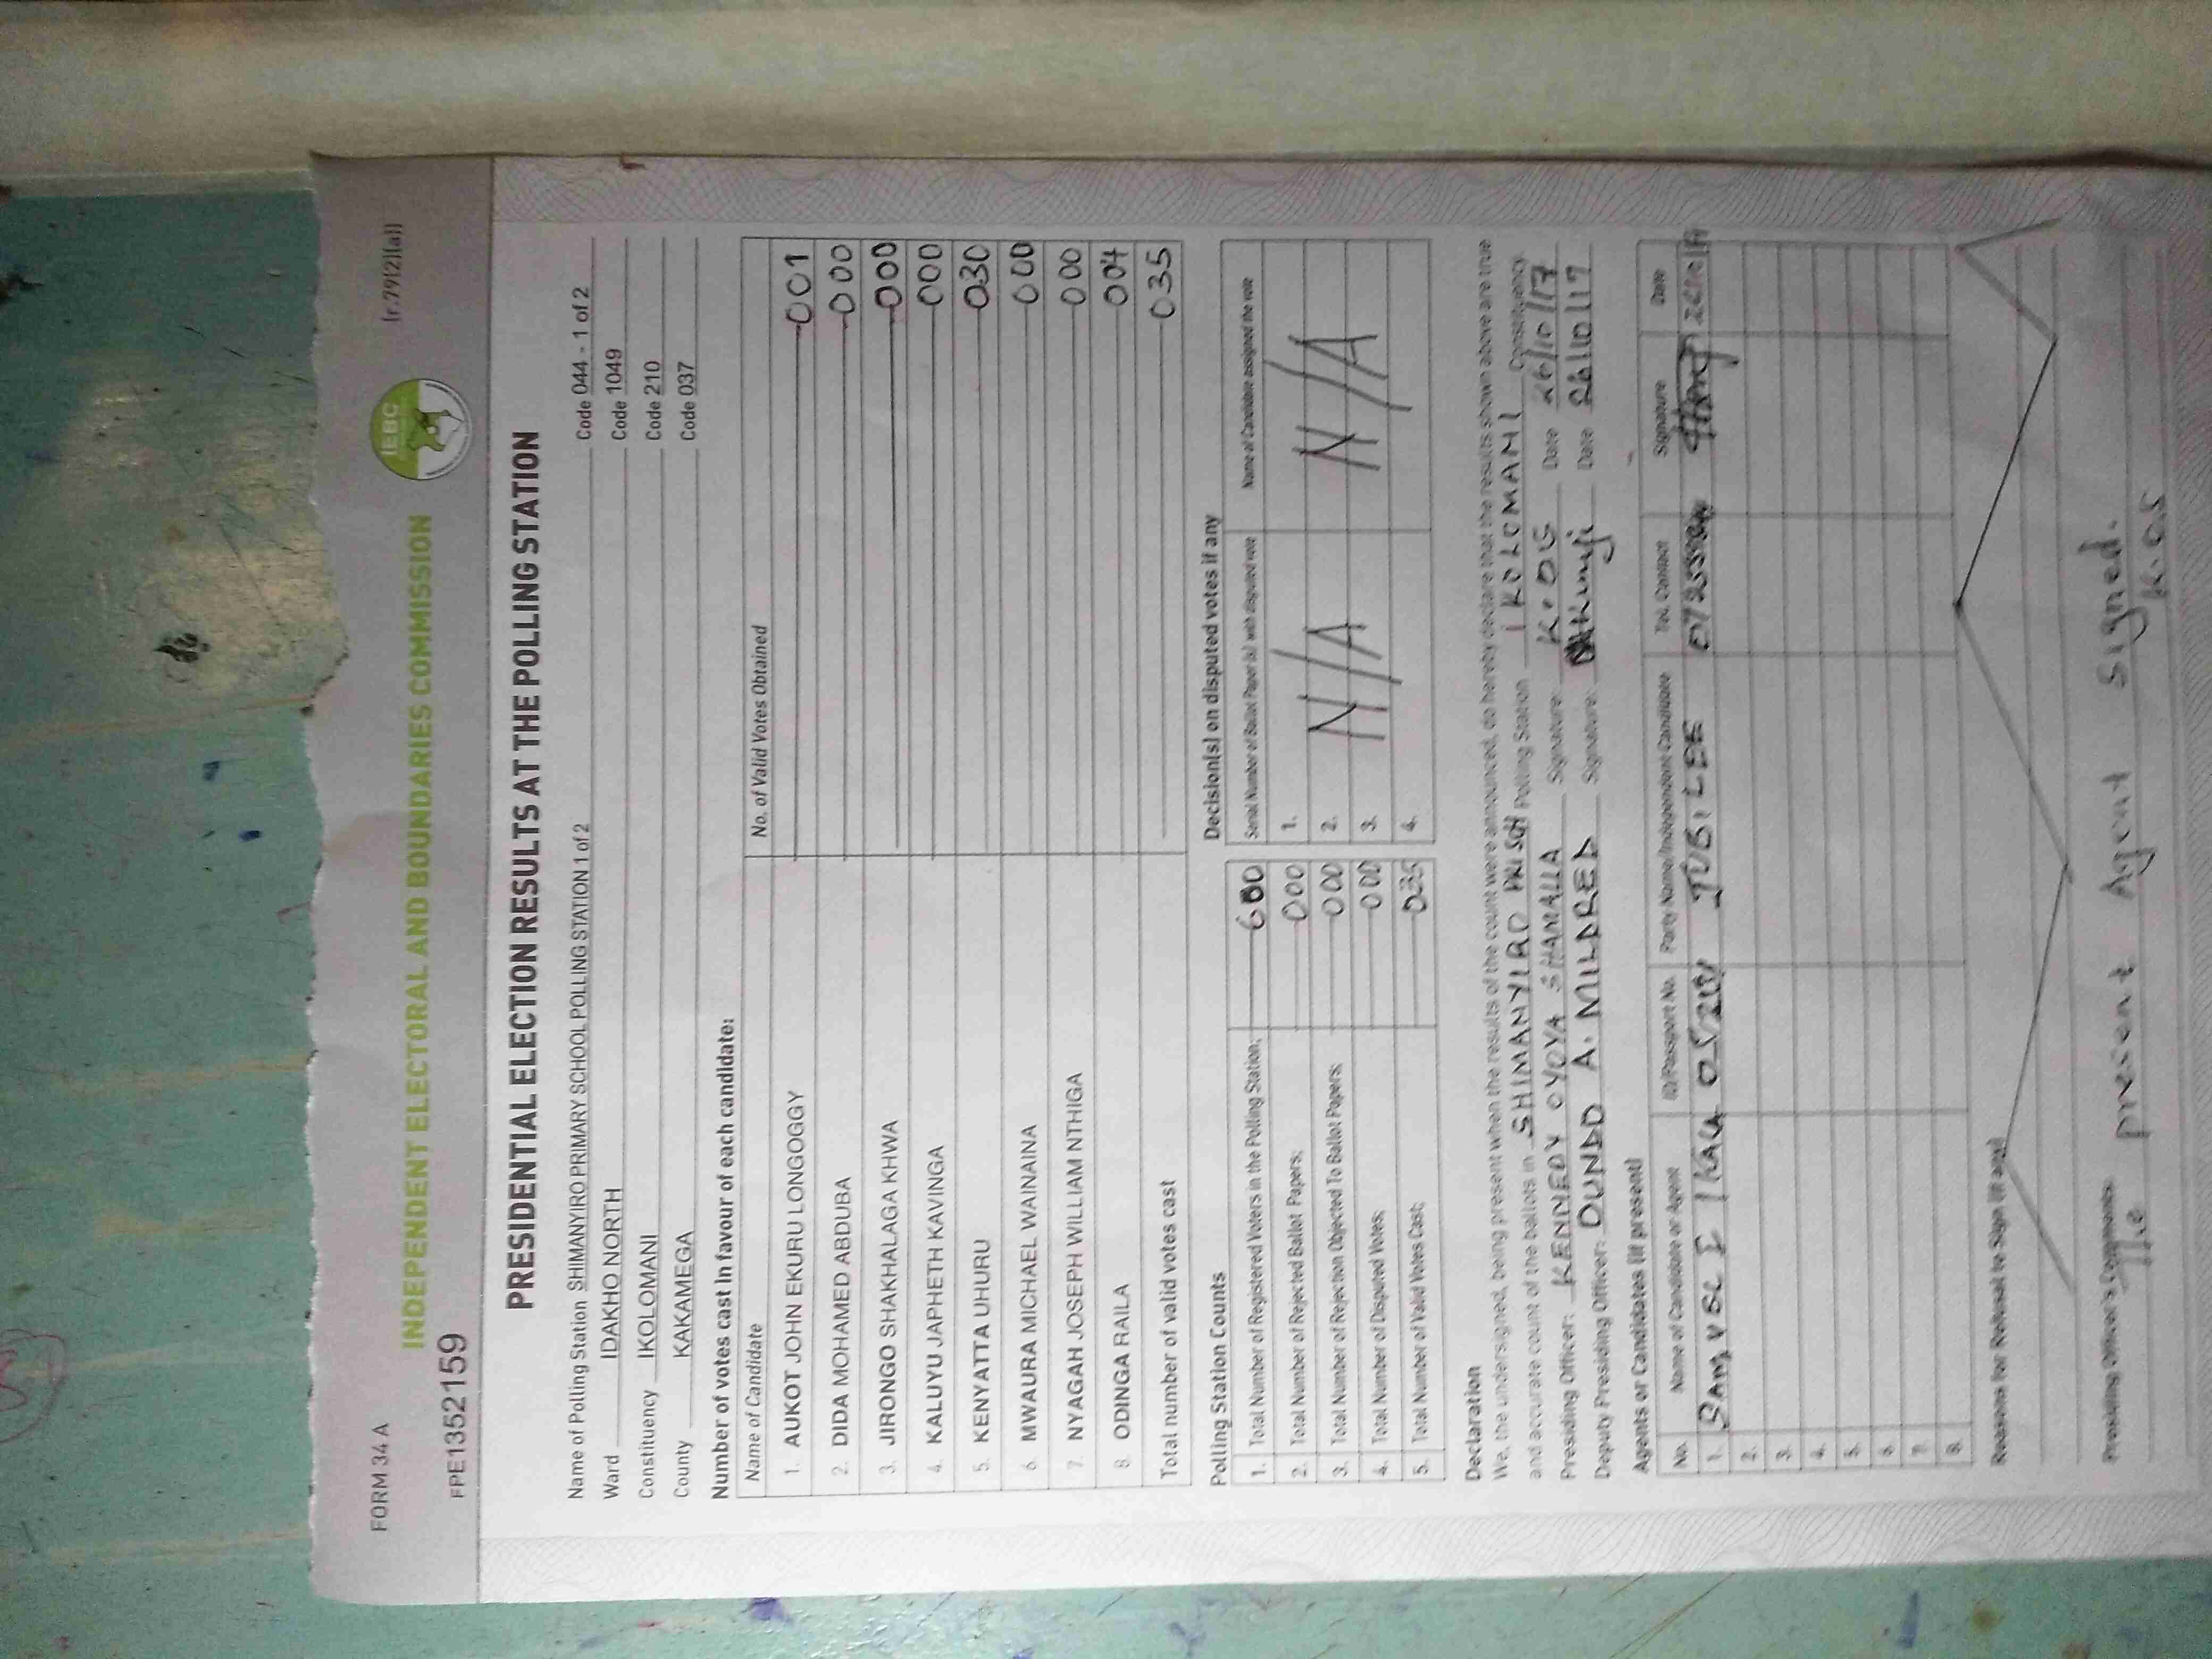 FORM 34 A
(r.79(2)(a))
IEBC
INDEPENDENT ELECTORAL AND BOUNDARIES COMMISSION
FPE1352159
PRESIDENTIAL ELECTION RESULTS AT THE POLLING STATION
Name of Polling Station SHIMANYIRO PRIMARY SCHOOL POLLING STATION 1 of 2 Code 044 - 1 of 2
Ward IDAKHO NORTH Code 1049
Constituency IKOLOMANI Code 210
County KAKAMEGA Code 037
Number of votes cast In favour of each candidate:
Name of Candidate No. of Valid Votes Obtained
1. AUKOT JOHN EKURU LONGOGGY 001
2. DIDA MOHAMED ABDUBA 000
3. JIRONGO SHAKHALAGA KHWA 000
4. KALUYU JAPHETH KAVINGA 000
5. KENYATTA UHURU 030
6 MWAURA MICHAEL WAINAINA 000
7. NYAGAH JOSEPH WILLIAM NTHIGA 000
8. ODINGA RAILA 004
Total number of valid votes cast 035
Polling Station Counts
1. Total Number of Registered Voters in the Polling Station;
2. Total Number of Rejected Ballot Papers; 000
3. Total Number of Rejection Objected To Ballot Papers; 000
4. Total Number of Disputed Votes; 000
5. Total Number of Valid Votes Cast; 035
Decision(s) on disputed votes if any
Serial Number of Ballot Paper (s) with disputed vote Name of Candidate assigned the vote
1.
2. N/A N/A
3.
4.
Declaration
We, the undersigned, being present when the results of the count were announced, do hereby declare that the results shown above are true
and accurate count of the ballots in SHIMANYIRO PRI SCH Polling Station IKOLOMANI Constituency
Presiding Officer: KENNEDY OYOYA SHAMALLA Signature: K.OS Date 26/10/17
Deputy Presiding Officer: DUNDO A. MILDRED Signature: Date 26/10/17
Agents or Candidates (if present)
No. Name of Candidate or Agent ID/Passport No. Party Name/Independent Candidate Tel. Contact Signature Date
1. SAMUEL I JUBILEE
2.
3.
4.
5.
6.
7.
8.
Reasons for Refusal to Sign (if any)
Presiding Officer's Comments:
The present Agent signed.
K.OS